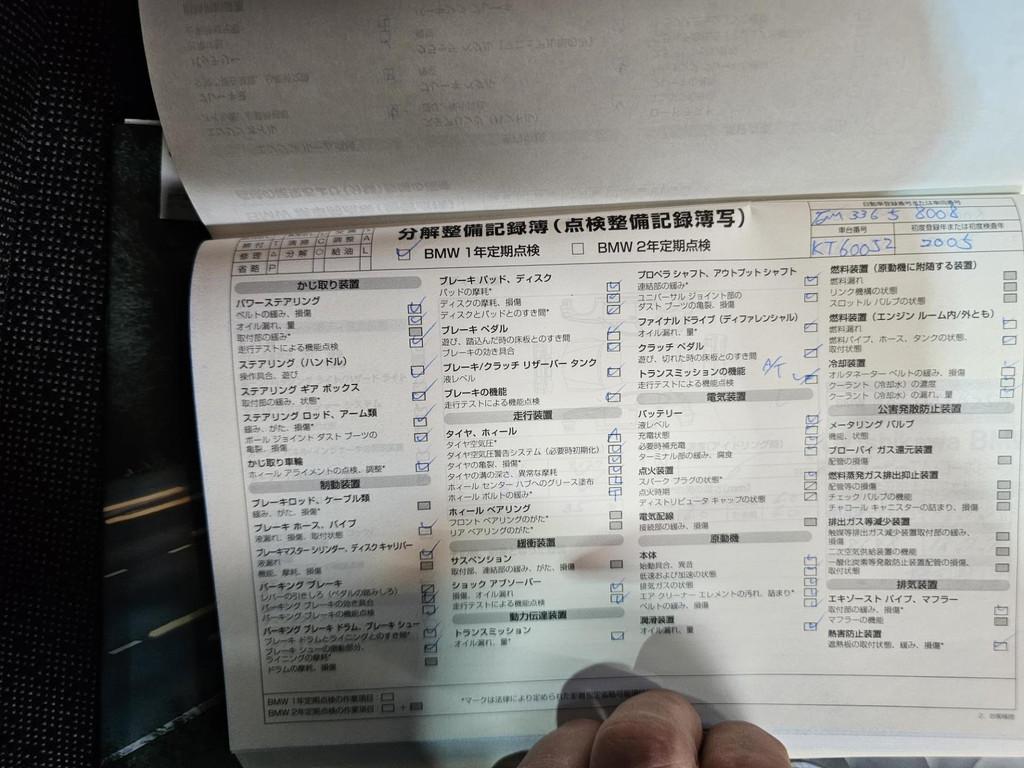 分解整備記録簿(点検整備記録簿写)
BMW 1年定期点検
BMW 2年定期点検
自動車登録番号または車両番号
336 5 8008
車台番号
初度登録年または初度検査年
KT60052
2005
締付 T 清掃 C 調整 A
修理 分解 給油 L
省略 P
かじ取り装置
パワーステアリング
ベルトの緩み、損傷
オイル漏れ、量
取付部の緩み*
走行テストによる機能点検
ステアリング(ハンドル)
操作具合、遊び
ステアリング ギア ボックス
取付部の緩み、状態*
ステアリング ロッド、アーム類
緩み、がた、損傷*
ボール ジョイント ダスト ブーツの
亀裂、損傷
かじ取り車輪
ホィール アライメントの点検、調整*
制動装置
ブレーキロッド、ケーブル類
緩み、がた、損傷*
ブレーキ ホース、パイプ
液漏れ、損傷、取付状態
ブレーキマスター シリンダー、ディスク キャリパー
液漏れ
機能、摩耗、損傷
パーキング ブレーキ
レバーの引きしろ(ペダルの踏みしろ)
パーキング ブレーキの効き具合
パーキング ブレーキの機能点検
パーキング ブレーキ ドラム、ブレーキ シュー
ブレーキ ドラムとライニングとのすき間*
ブレーキ シューの摺動部分、
ライニングの摩耗*
ドラムの摩耗、損傷
ブレーキ パッド、ディスク
パッドの摩耗*
ディスクの摩耗、損傷
ディスクとパッドとのすき間*
ブレーキ ペダル
遊び、踏込んだ時の床板とのすき間
ブレーキの効き具合
ブレーキ/クラッチ リザーバー タンク
液レベル
ブレーキの機能
走行テストによる機能点検
走行装置
タイヤ、ホィール
タイヤ空気圧*
タイヤ空気圧警告システム(必要時初期化)
タイヤの亀裂、損傷*
タイヤの溝の深さ、異常な摩耗
ホィール センター ハブへのグリース塗布
ホィール ボルトの緩み*
ホィール ベアリング
フロント ベアリングのがた*
リア ベアリングのがた*
緩衝装置
サスペンション
取付部、連結部の緩み、がた、損傷
ショック アブソーバー
損傷、オイル漏れ
走行テストによる機能点検
動力伝達装置
トランスミッション
オイル漏れ、量*
プロペラ シャフト、アウトプット シャフト
連結部の緩み*
ユニバーサル ジョイント部の
ダスト ブーツの亀裂、損傷
ファイナル ドライブ(ディファレンシャル)
オイル漏れ、量*
クラッチ ペダル
遊び、切れた時の床板とのすき間
トランスミッションの機能
走行テストによる機能点検
A/T
電気装置
バッテリー
液レベル
充電状態
必要時補充電
ターミナル部の緩み、腐食
点火装置
スパーク プラグの状態*
点火時期
ディストリビュータ キャップの状態
電気配線
接続部の緩み、損傷
原動機
本体
始動具合、異音
低速および加速の状態
排気ガスの状態
エア クリーナー エレメントの汚れ、詰まり*
ベルトの緩み、損傷
潤滑装置
オイル漏れ、量
燃料装置(原動機に附随する装置)
燃料漏れ
リンク機構の状態
スロットル バルブの状態
燃料装置(エンジン ルーム内/外とも)
燃料漏れ
燃料パイプ、ホース、タンクの状態、
取付状態
冷却装置
オルタネーター ベルトの緩み、損傷
クーラント(冷却水)の濃度
クーラント(冷却水)の漏れ、量
公害発散防止装置
メータリング バルブ
機能、状態
ブローバイ ガス還元装置
配管の損傷
燃料蒸発ガス排出抑止装置
配管等の損傷
チェック バルブの機能
チャコール キャニスターの詰まり、損傷
排出ガス等減少装置
触媒等排出ガス減少装置取付部の緩み、
損傷
二次空気供給装置の機能
一酸化炭素等発散防止装置配管の損傷、
取付状態
排気装置
エキゾースト パイプ、マフラー
取付部の緩み、損傷*
マフラーの機能
熱害防止装置
遮熱板の取付状態、緩み、損傷*
BMW 1年定期点検の作業項目:
BMW 2年定期点検の作業項目: +
*マークは法律により定められた